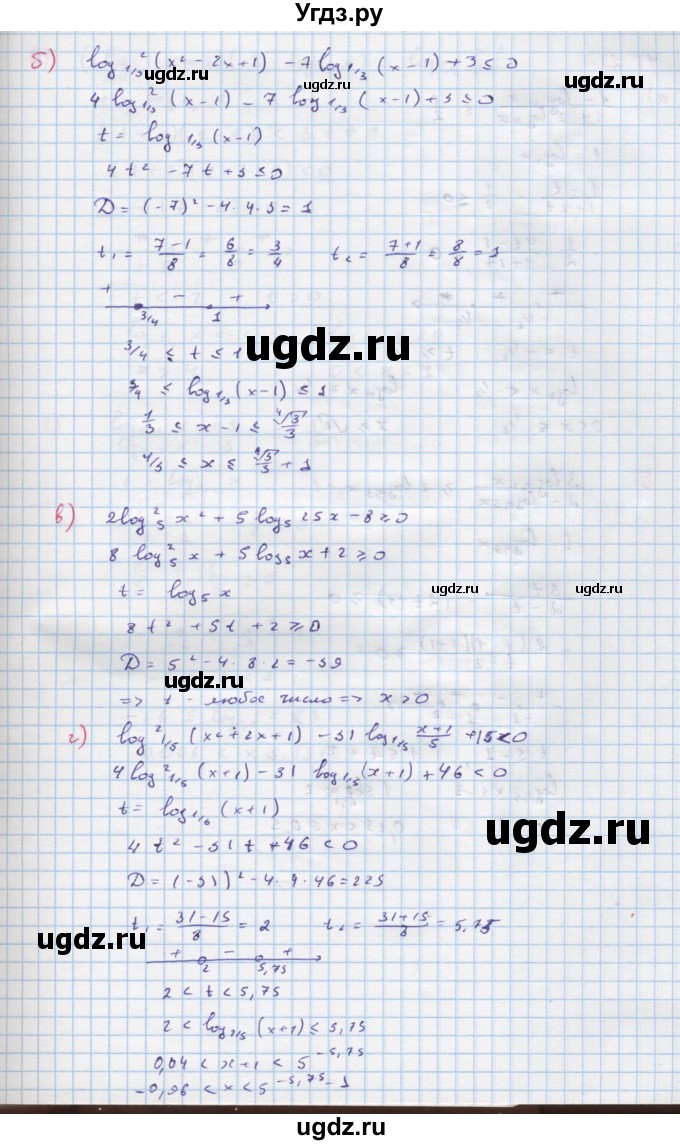 Угдз.ру
б) log²₁/₃ (x² - 2x + 1) - 7 log₁/₃ (x - 1) + 3 ≤ 0
4 log²₁/₃ (x - 1) - 7 log₁/₃ (x - 1) + 3 ≤ 0
t = log₁/₃ (x - 1)
4t² - 7t + 3 ≤ 0
D = (-7)² - 4·4·3 = 1
t₁ = (7-1)/8 = 6/8 = 3/4 t₂ = (7+1)/8 = 8/8 = 1
+ - +
3/4 1
3/4 ≤ t ≤ 1
ugdz.ru
3/4 ≤ log₁/₃ (x - 1) ≤ 1
1/3 ≤ x - 1 ≤ ⁴√3/3
4/3 ≤ x ≤ ⁴√3/3 + 1
в) 2log²₅ x² + 5 log₅ 25x - 8 ≥ 0
8 log²₅ x + 5 log₅ x + 2 ≥ 0
t = log₅ x
ugdz.ru ugdz.ru
8t² + 5t + 2 ≥ 0
D = 5² - 4·8·2 = -39
=> t - любое число => x > 0
г) log²₁/₅ (x² + 2x + 1) - 31 log₁/₅ (x+1)/5 + 15 < 0
4 log²₁/₅ (x+1) - 31 log₁/₅ (x+1) + 46 < 0
t = log₁/₅ (x+1)
ugdz.ru
4t² - 31t + 46 < 0
D = (-31)² - 4·4·46 = 225
t₁ = (31-15)/8 = 2 t₂ = (31+15)/8 = 5,75
ugdz.ru
+ - +
2 5,75
2 < t < 5,75
2 < log₁/₅ (x+1) ≤ 5,75
0,04 < x+1 < 5^-5,75
-0,96 < x < 5^-5,75 - 1
ugdz.ru